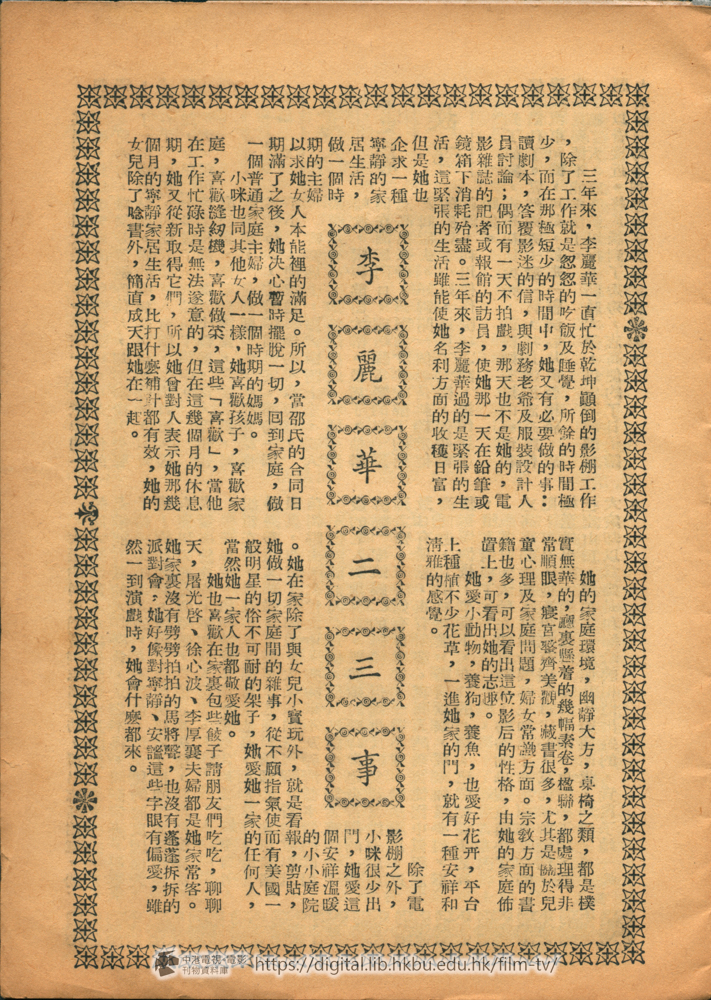 李麗華二三事
三年來，李麗華一直忙於乾坤顚倒的影棚工作
，除了工作就是怱怱的吃飯及睡覺，所餘的時間極
少，而在那極短少的時間中，她又有必要做的事：
讀劇本，答覆影迷的信，與劇務老爺及服裝設計人
員討論；偶而有一天不拍戲，那天也不是她的，電
影雜誌的記者或報館的訪員，使她那一天在鉛筆或
鏡箱下消耗殆盡。三年來，李麗華過的是緊張的生
活，這緊張的生活雖能使她名利方面的收穫日富，
但是她也
企求一種
寧靜的家
居生活，
做一個時
期的主婦
以求她女人本能裡的滿足。所以，當邵氏的合同日
期滿了之後，她決心暫時擺脫一切，回到家庭，做
一個普通家庭主婦，做一個時期的媽媽。
小咪也同其他女人一樣，她喜歡孩子，喜歡家
庭，喜歡縫紉機，喜歡做菜，這些「喜歡」，當他
在工作忙碌時是無法遂意的，但在這幾個月的休息
期，她又從新取得它們，所以她會對人表示她那幾
個月的寧靜家居生活，比打什麽補針都有效，她的
女兒除了唸書外，簡直成天跟她在一起。
她的家庭環境，幽靜大方，桌椅之類，都是樸
實無華的，廳裏懸着的幾幅素卷，楹聯，都處理得非
常順眼，寢宮整齊美觀，藏書很多，尤其是關於兒
童心理及家庭問題，婦女常識方面。宗敎方面的書
籍也多，可以看出這位影后的性格，由她的家庭佈
置上，可看出她的志趣。
她愛小動物，養狗，養魚，也愛好花卉，平台
上種植不少花草，一進她家的門，就有一種安祥和
淸雅的感覺。
除了電
影棚之外，
小咪很少出
門，她愛這
個安祥溫暖
的小小庭院
。她在家除了與女兒小寶玩外，就是看報，剪貼，
她做一切家庭間的雜事，從不願指氣使而有美國一
般明星的俗不可耐的架子，她愛她一家的任何人，
當然她一家人也都敬愛她。
她也喜歡在家裏包些餃子請朋友們吃吃，聊聊
天，屠光啓、徐心波、李厚襄夫婦都是她家常客。
她家裏沒有劈劈拍拍的馬將聲，也沒有蓬蓬拆拆的
派對會，她好像對寧靜、安謐這些字眼有偏愛，雖
然一到演戲時，她會什麽都來。
中港電視·電影
刊物資料庫
https://digital.lib.hkbu.edu.hk/film-tv/